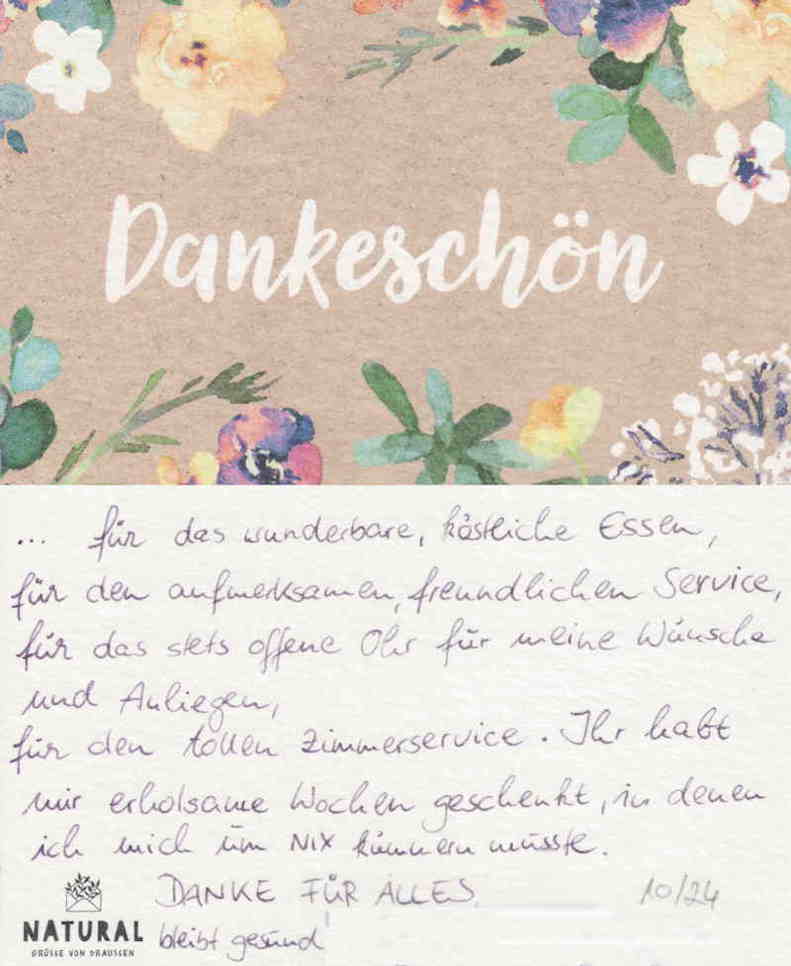 Dankeschön
... für das wunderbare, köstliche Essen,
für den aufmerksamen, freundlichen Service,
für das stets offene Ohr für meine Wünsche
und Anliegen,
für den tollen Zimmerservice. Ihr habt
mir erholsame Wochen geschenkt, in denen
ich mich um NIX kümmern musste.
DANKE FÜR ALLES. 10/24
bleibt gesund
NATURAL
GRÜSSE VON DRAUSSEN